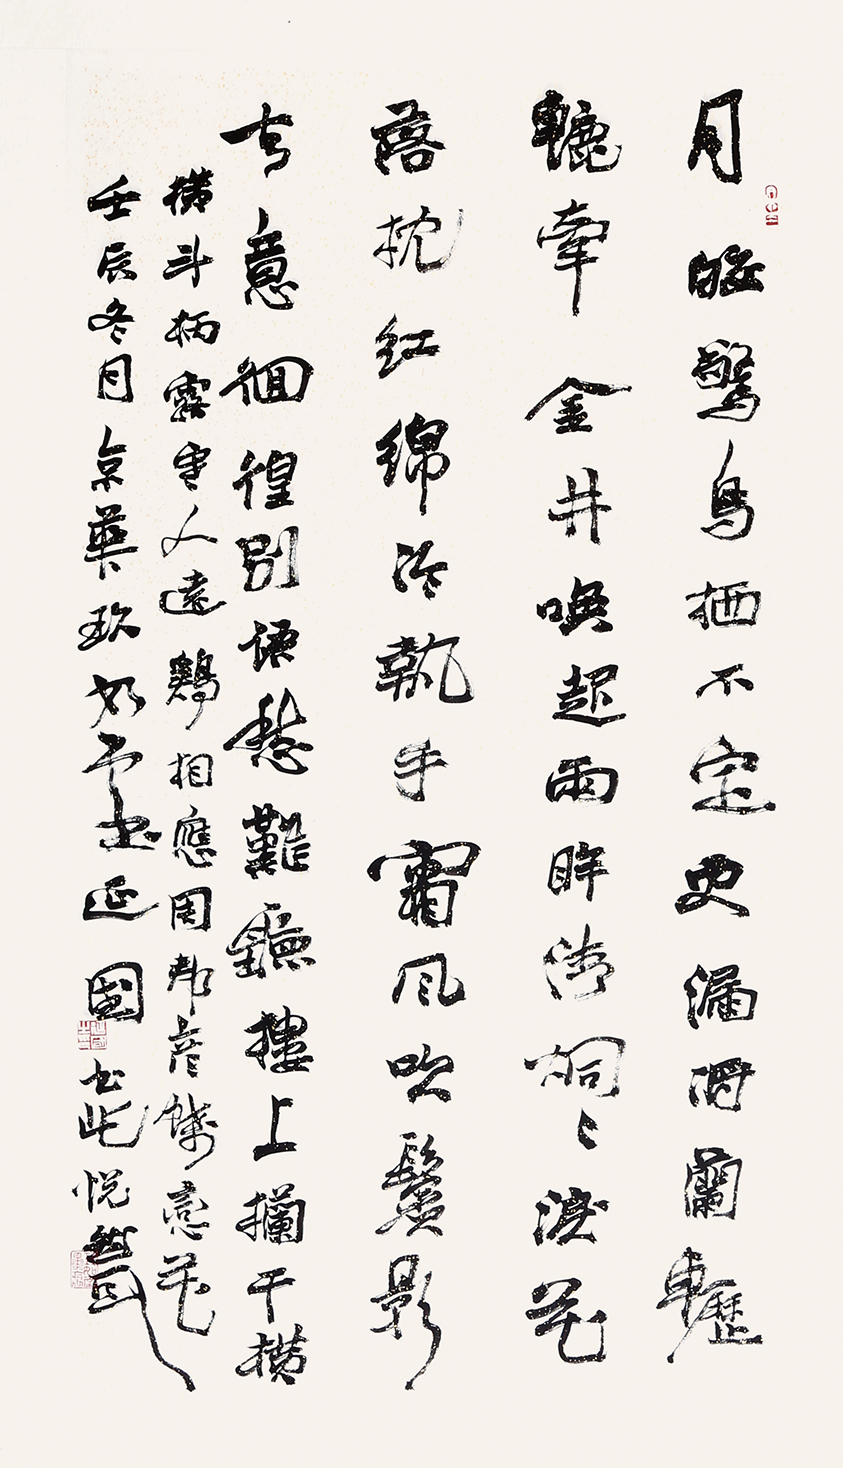 月皎驚烏栖不定更漏將蘭轣
轆牽金井喚起兩眸清炯〻淚花
落枕紅綿冷執手霜風吹鬢影
去意徊徨別語愁難聽樓上攔干橫
橫斗柄露寒人遠鷄相應周邦彥蝶戀花
壬辰冬月京華玖如延國書此悅然